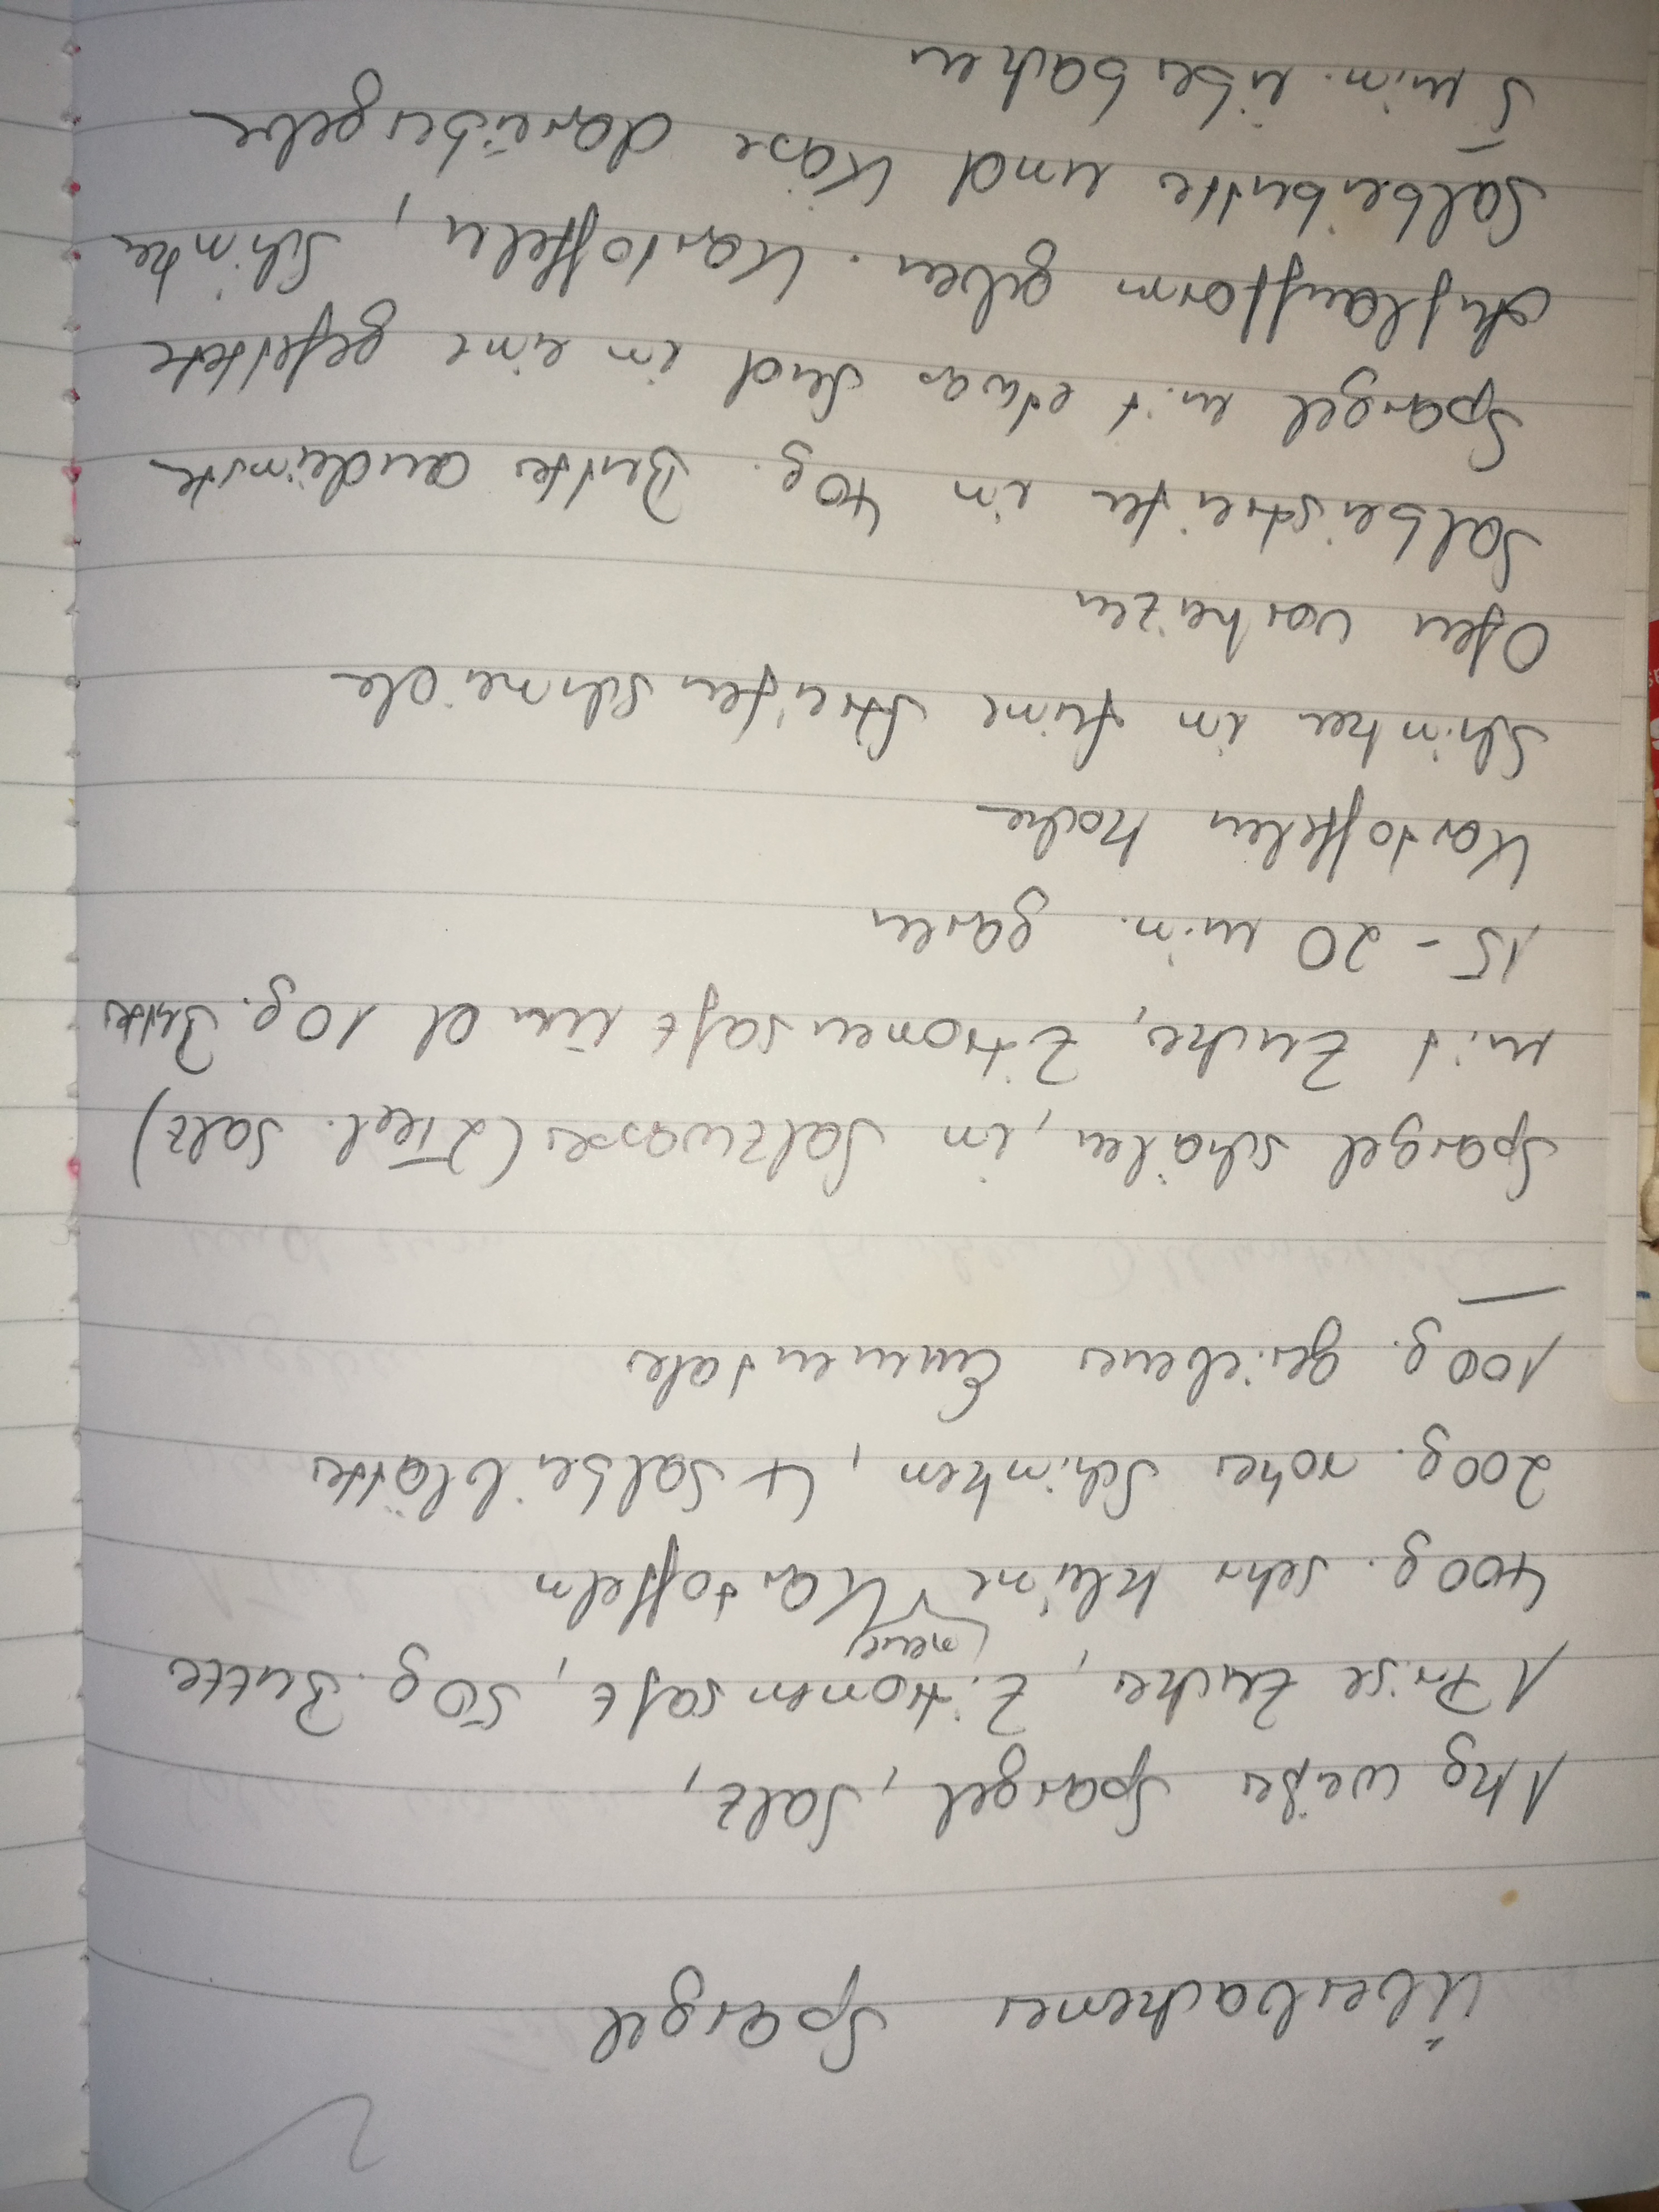 Überbackener Spargel
1 kg weißer Spargel, Salz,
1 Prise Zucker, Zitronensaft, 50 g. Butter
neue
400 g. sehr kleine Kartoffeln
200 g. roher Schinken, 4 Salbeiblätter
100 g. geriebener Emmentaler
Spargel schälen, in Salzwasser (2 Teel. Salz)
mit Zucker, Zitronensaft und 10 g. Butter
15 - 20 min. garen
Kartoffelen kochen
Schinken in feine Streifen schneiden
Ofen vorheizen
Salbeistreifen in 40 g. Butter andünsten
Spargel mit etwas Sud in eine gefettete
Auflaufform geben. Kartoffeln, Schinken
Salbeibutter und Käse darübergeben
5 min. überbacken